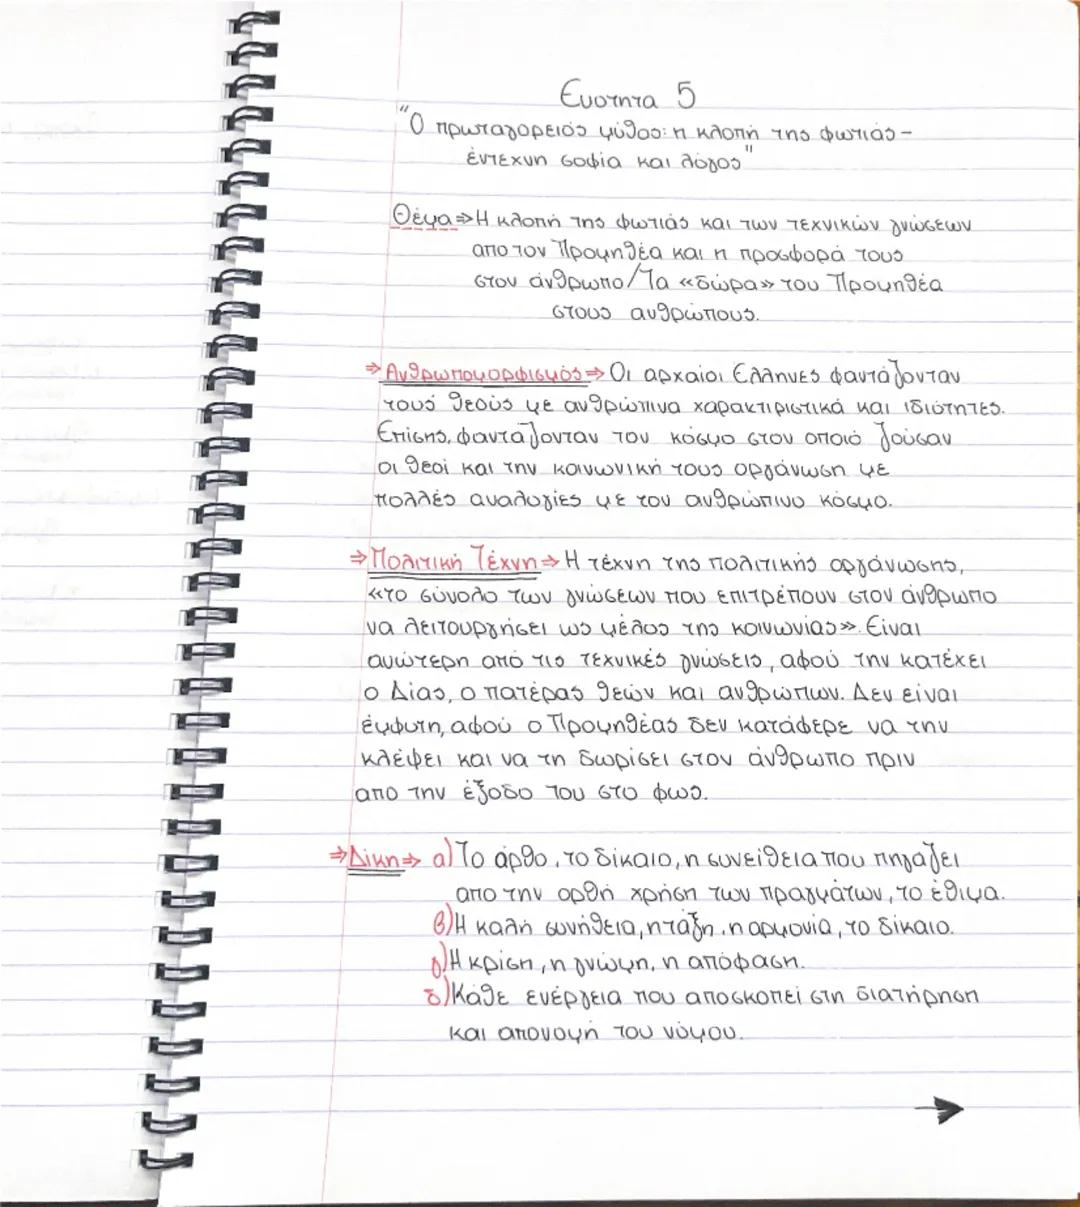 Ενότητα 5
"Ο πρωταγόρειος μύθος: η κλοπή της φωτιάς -
έντεχνη σοφία και λόγος"
Θέμα⇒Η κλοπή της φωτιάς και των τεχνικών γνώσεων
απο τον Προμηθέα και η προσφορά τους
στον άνθρωπο/Τα «δώρα» του Προμηθέα
στους ανθρώπους.
⇒Ανθρωπομορφισμός⇒Οι αρχαίοι Έλληνες φανταζονταν
τους θεούς με ανθρώπινα χαρακτιριστικά και ιδιότητες.
Επίσης, φανταζονταν τον κόσμο στον οποίο ζούσαν
οι θεοί και την κοινωνική τους οργάνωση με
πολλές αναλογίες με τον ανθρώπινο κόσμο.
⇒Πολιτική Τέχνη⇒Η τέχνη της πολιτικής οργάνωσης,
«το σύνολο των γνώσεων που επιτρέπουν στον άνθρωπο
να λειτουργήσει ως μέλος της κοινωνίας». Είναι
ανώτερη από τις τεχνικές γνώσεις, αφού την κατέχει
ο Δίας, ο πατέρας θεών και ανθρώπων. Δεν είναι
έμφυτη, αφού ο Προμηθέας δεν κατάφερε να την
κλέψει και να τη δωρίσει στον άνθρωπο πριν
απο την έξοδο του στο φως.
⇒Δίκη⇒ α)Το όρθο, το δίκαιο, η συνείθεια που πηγάζει
απο την ορθή χρήση των πραγμάτων, το έθιμα.
β)Η καλή συνήθεια, η τάξη, η αρμονία, το δίκαιο.
γ)Η κρίση, η γνώμη, η απόφαση.
δ)Κάθε ενέργεια που αποσκοπεί στη διατήρηση
και απονομή του νόμου.